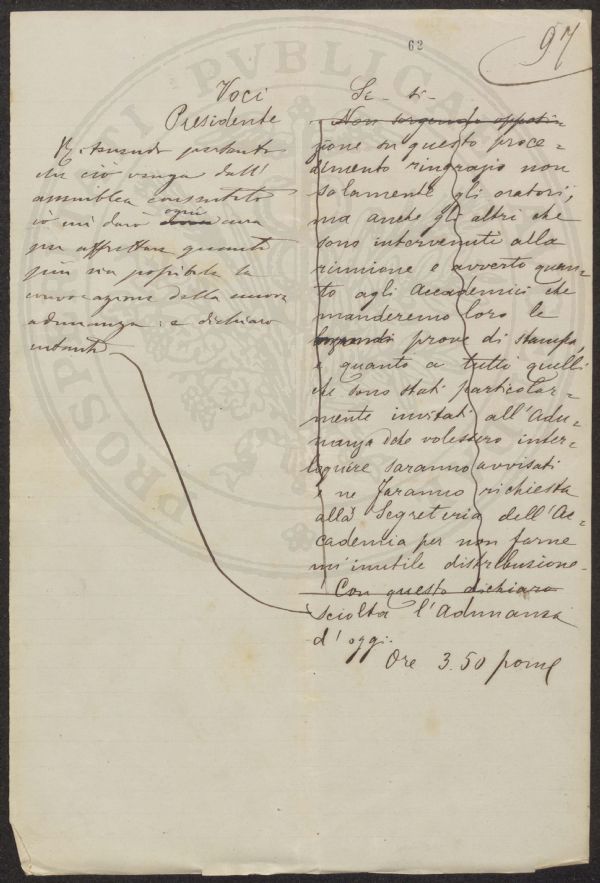 62
97
Voci
Sì - sì -
Presidente
Riassumendo pertanto
che ciò venga dall'
assemblea consentito
io mi darò ogni cura
per affrettare quanto
più sia possibile la
convocazione della nuova
adunanza: e dichiaro
intanto
Non sorgendo opposi=
zione su questo proce=
dimento ringrazio non
solamente gli oratori,
ma anche gli altri che
sono intervenuti alla
riunione e avverto quan=
to agli Accademici che
manderemo loro le
prove di stampa,
e quanto a tutti quelli
che sono stati particolar=
mente invitati all'Adu=
nanza dove volessero inter=
loquire saranno avvisati
e ne faranno richiesta
alla Segreteria dell'Ac=
cademia per non farne
un'inutile distribuzione.
Con questo dichiaro
sciolta l'Adunanza
d'oggi.
Ore 3.50 pom
PROSPERITATI PUBLICAE